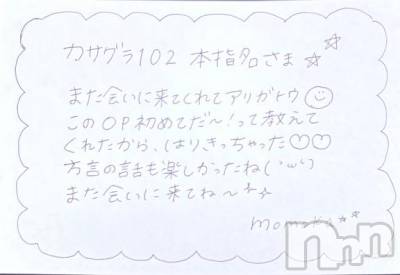 カサグラ102 本指名さま☆☆
また会いに来てくれてアリガトウ☺
このOP初めてだ〜!って教えて
くれたから、はりきっちゃった♡♡
方言の話も楽しかったね(´ω`)
また会いに来てね〜